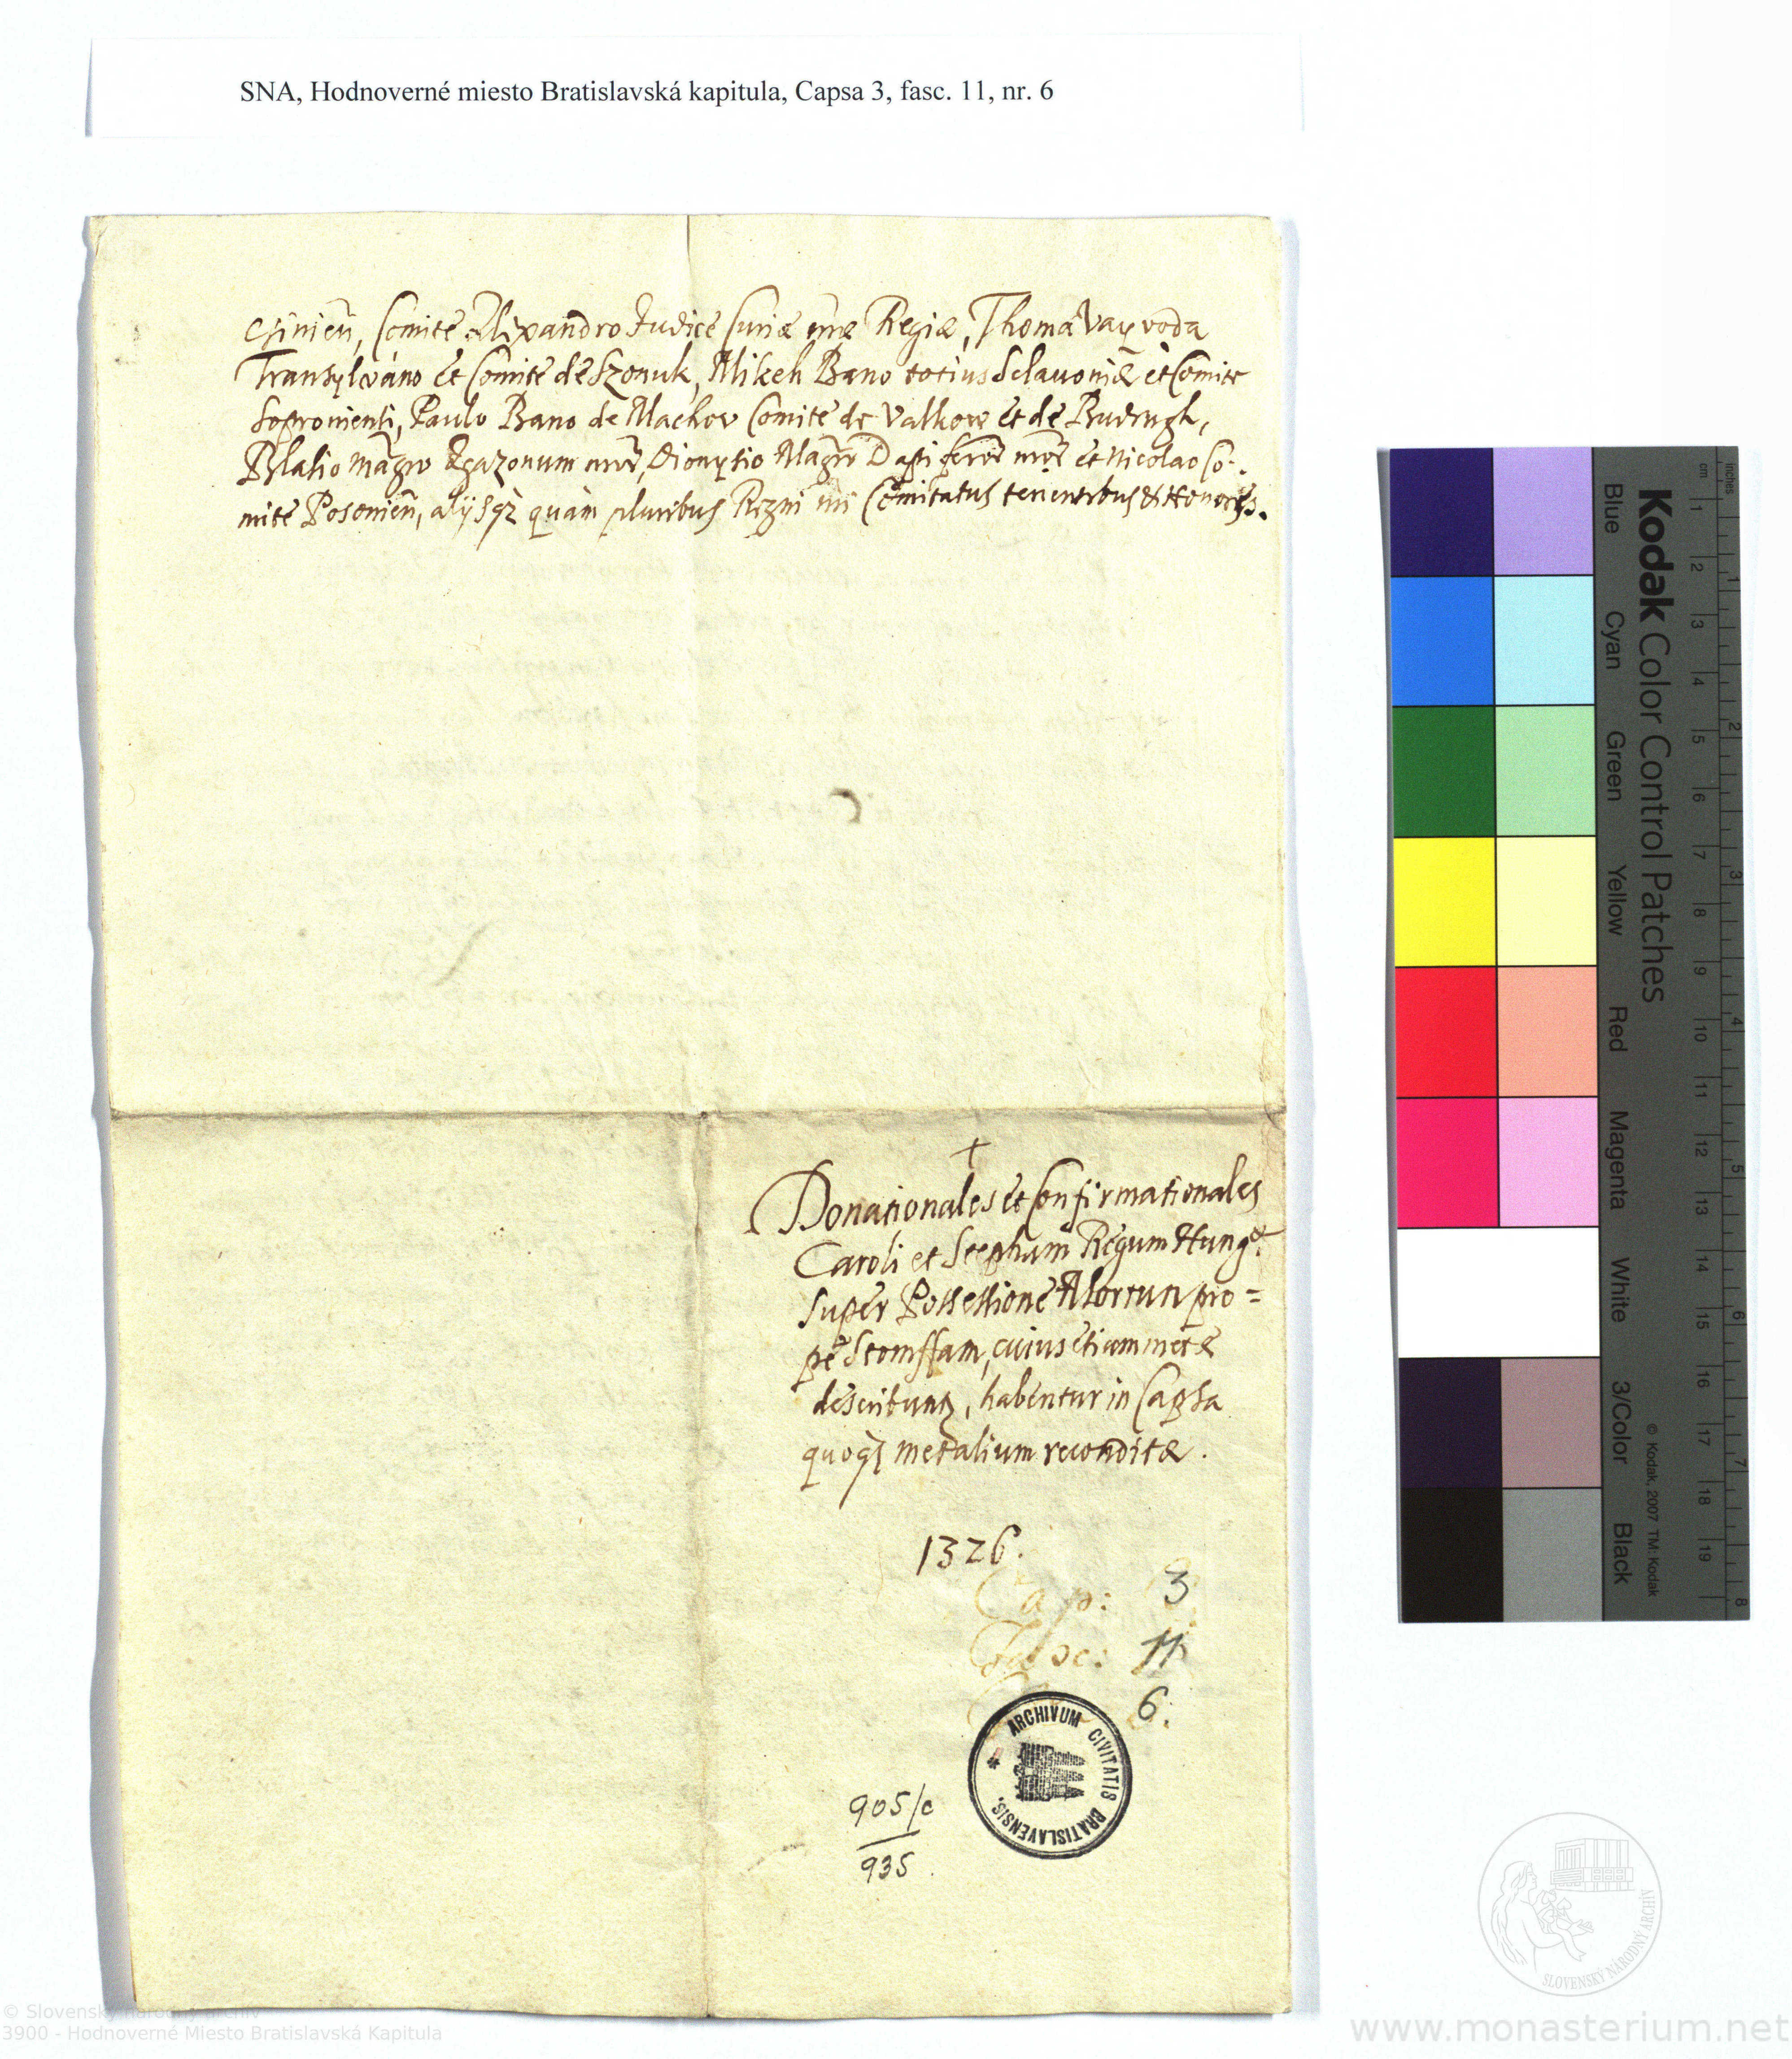 SNA, Hodnoverné miesto Bratislavská kapitula, Capsa 3, fasc. 11, nr. 6
Comite Alexandro Iudice Curiæ nr̃æ Regiæ, Thoma Vayvoda
Transylváno et Comite de Szonuk, Mikeh Bano totius Sclavoniæ et Comite
Soproniensi, Paulo Bano de Machov Comite de Valkow et de Budrugh,
Blasio Magr̃o Agazonum nr̃or̃, Dionysio Magr̃o Dapiferor̃ nr̃or̃ et Nicolao Co-
mite Posonien̄, alijsqȝ quàm pluribus Regni nr̃i Comitatus tenentibus et Honores.
+
Donationales et Confirmationales
Caroli et Stephani Regum Hungæ.
super Possessione Abortun pro=
pe Stomffam, cuius etiam metæ
describunt, habentur in Capsa
quoqȝ metalium reconditæ.
1326.
Cap: 3
Fasc: 11
6.
ARCHIVUM CIVITATIS BRATISLAVENSIS. *
905/c
935
Kodak Color Control Patches
Blue Cyan Green Yellow Red Magenta White 3/Color Black
© Kodak, 2007 TM: Kodak
inches 1 2 3 4 5 6 7 8
cm 1 2 3 4 5 6 7 8 9 10 11 12 13 14 15 16 17 18 19
SLOVENSKÝ NÁRODNÝ ARCHÍV
© Slovenský národný archív
3900 - Hodnoverné Miesto Bratislavská Kapitula
www.monasterium.net